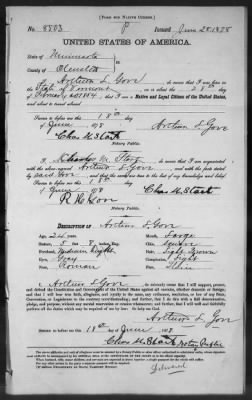 [FORM FOR NATIVE CITIZEN.]
No. 8503 P Issued June 28, 1878
UNITED STATES OF AMERICA.
State of Minnesota
County of Olmsted
I, Arthur S Gove do swear that I was born in
State of Vermont on the 28th day
of February 1854; that I am a Native and Loyal Citizen of the United States,
and about to travel abroad
Sworn to before me, this 18th day
of June 1878
Arthur S Gove
Chas M Start
Notary Public.
I, Charles M. Start do swear that I am acquainted
with the above named Arthur S Gove and with the facts above stated
by him, and that the same are true to the best of my knowledge and belief.
Sworn to before me, this 18th day
of June 1878
Chas M. Start
Notary Public.
DESCRIPTION OF Arthur S Gove
Age: 24 years
Mouth: Large
Stature: 5 feet 8 inches, Eng.
Forehead: Medium
Hair: Brown
Eyes: Grey
Complexion: Light
Nose: Roman
Face: Thin
I, Arthur S Gove do solemnly swear that I will support, protect, and
defend the Constitution and Government of the United States against all enemies, whether domestic or foreign;
and that I will bear true faith, allegiance, and loyalty to the same, any ordinance, resolution, or law of any State,
Convention, or Legislature to the contrary notwithstanding; and further, that I do this with a full determination,
pledge, and purpose, without any mental reservation or evasion whatsoever; and further, that I will well and faithfully
perform all the duties which may be required of me by law: So help me God.
Arthur S Gove
Sworn to before me, this 18th day of June 1878
Chas M Start Notary Public